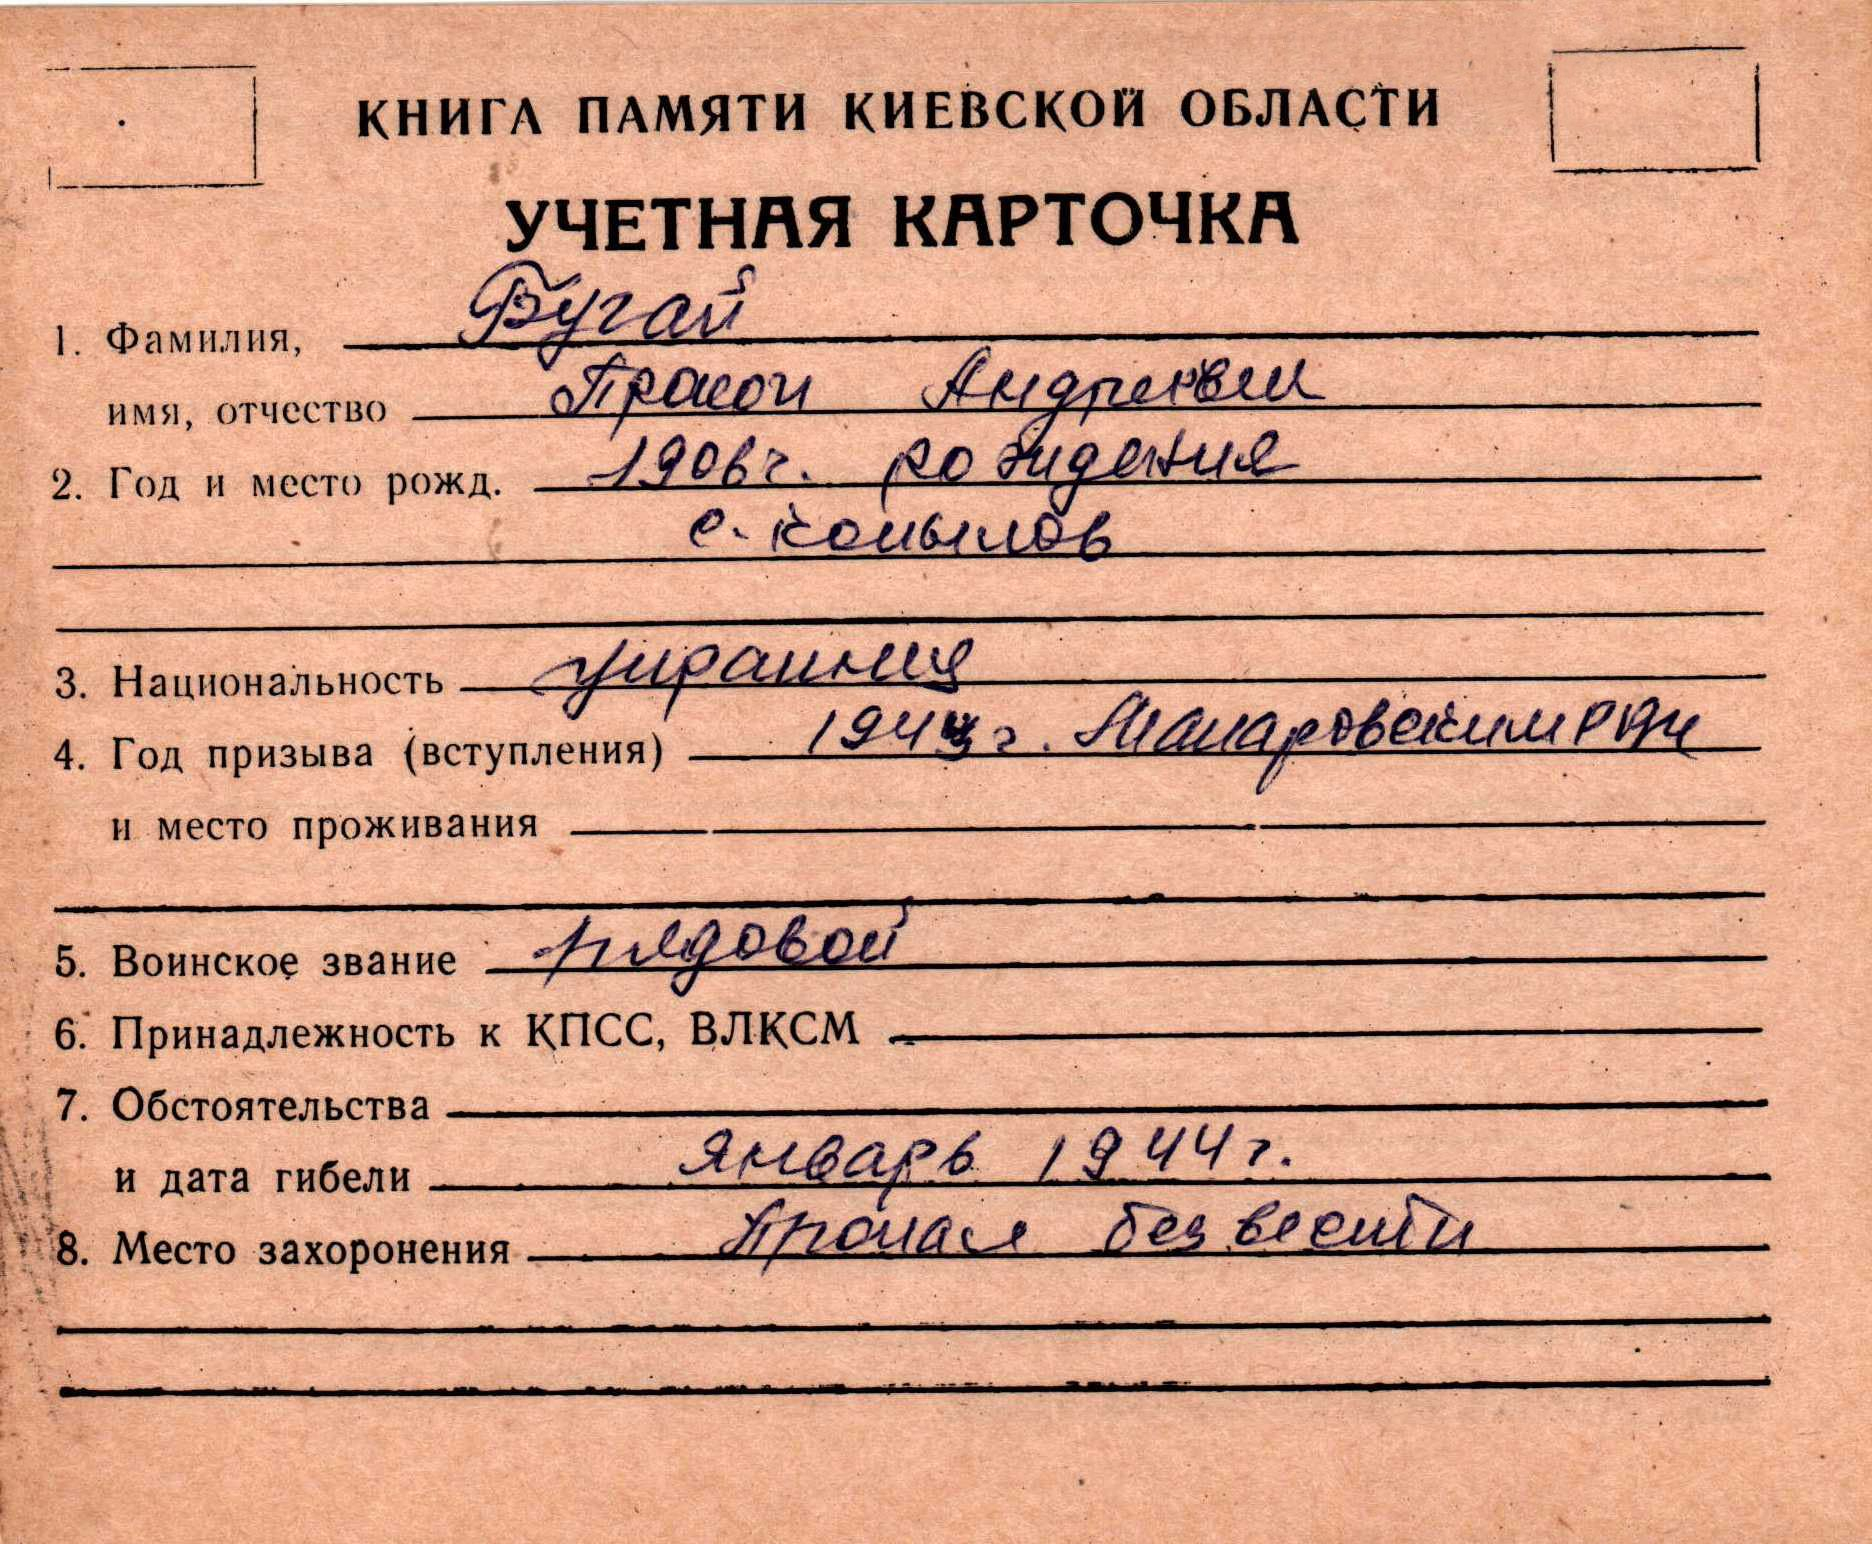 КНИГА ПАМЯТИ КИЕВСКОЙ ОБЛАСТИ
УЧЕТНАЯ КАРТОЧКА
1. Фамилия, Бугай
имя, отчество Андреевич
2. Год и место рожд. 1906 г. рождения
с. Копылов
3. Национальность украинец
4. Год призыва (вступления) Макаровским РВК
и место проживания
5. Воинское звание рядовой
6. Принадлежность к КПСС, ВЛКСМ
7. Обстоятельства
и дата гибели январь 1944 г.
8. Место захоронения Пропал без вести